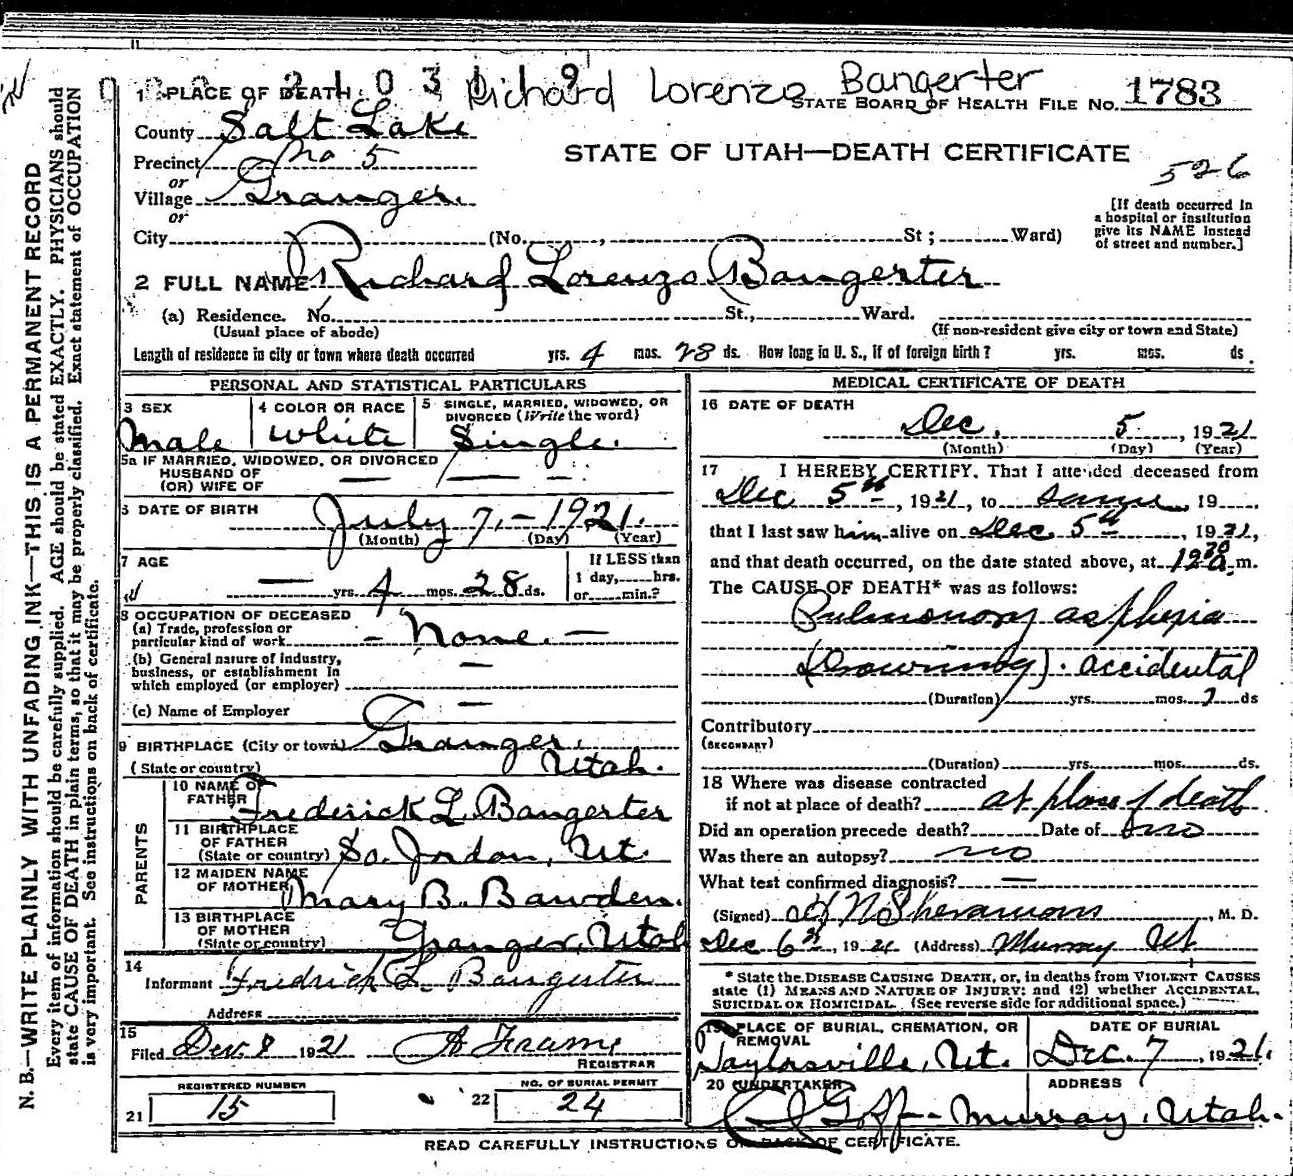 N. B.—WRITE PLAINLY WITH UNFADING INK—THIS IS A PERMANENT RECORD
Every item of information should be carefully supplied. AGE should be stated EXACTLY. PHYSICIANS should
state CAUSE OF DEATH in plain terms, so that it may be properly classified. Exact statement of OCCUPATION
is very important. See instructions on back of certificate.
Richard Lorenzo Bangerter
1 PLACE OF DEATH
STATE BOARD OF HEALTH FILE NO. 1783
County Salt Lake
Precinct No 5
STATE OF UTAH—DEATH CERTIFICATE
526
or
Village Granger.
or
[If death occurred in
a hospital or institution
give its NAME instead
of street and number.]
City (No. , St ; Ward)
2 FULL NAME Richard Lorenzo Bangerter
(a) Residence. No. St., Ward.
(Usual place of abode) (If non-resident give city or town and State)
Length of residence in city or town where death occurred yrs. 4 mos. 28 ds. How long in U. S., if of foreign birth? yrs. mos. ds.
PERSONAL AND STATISTICAL PARTICULARS
3 SEX
Male
4 COLOR OR RACE
White
5 SINGLE, MARRIED, WIDOWED, OR
DIVORCED (Write the word)
Single.
5a IF MARRIED, WIDOWED, OR DIVORCED
HUSBAND OF
(OR) WIFE OF
6 DATE OF BIRTH
July 7,—1921.
(Month) (Day) (Year)
7 AGE
— yrs. 4 mos. 28 ds.
If LESS than
1 day, hrs.
or min.?
8 OCCUPATION OF DECEASED
(a) Trade, profession or
particular kind of work – None. –
(b) General nature of industry,
business, or establishment in
which employed (or employer) —
(c) Name of Employer —
9 BIRTHPLACE (City or town) Granger,
(State or country) Utah.
PARENTS
10 NAME OF
FATHER Frederick L. Bangerter
11 BIRTHPLACE
OF FATHER
(State or country) So. Jordan, Ut.
12 MAIDEN NAME
OF MOTHER Mary B. Bawden.
13 BIRTHPLACE
OF MOTHER
(State or country) Granger, Utah
14
Informant Fredrick L. Bangerter
Address
15
Filed Dec. 8 1921
REGISTRAR
REGISTERED NUMBER
21 15
NO. OF BURIAL PERMIT
22 24
MEDICAL CERTIFICATE OF DEATH
16 DATE OF DEATH
Dec. 5, 1921
(Month) (Day) (Year)
17 I HEREBY CERTIFY, That I attended deceased from
Dec 5th, 1921, to same, 19
that I last saw him alive on Dec. 5th, 1921,
and that death occurred, on the date stated above, at m.
The CAUSE OF DEATH* was as follows:
Pulmonary asphexia
(Drowning). accidental
(Duration) yrs. mos. ds
Contributory
(SECONDARY)
(Duration) yrs. mos. ds.
18 Where was disease contracted
if not at place of death? at place of death
Did an operation precede death? Date of no
Was there an autopsy? no
What test confirmed diagnosis? —
(Signed) M. D.
Dec 6th, 1921 (Address) Murray Ut
* State the DISEASE CAUSING DEATH, or, in deaths from VIOLENT CAUSES
state (1) MEANS AND NATURE OF INJURY; and (2) whether ACCIDENTAL,
SUICIDAL OR HOMICIDAL. (See reverse side for additional space.)
19 PLACE OF BURIAL, CREMATION, OR
REMOVAL
Taylorsville, Ut.
DATE OF BURIAL
Dec. 7, 1921.
20 UNDERTAKER
Goff—
ADDRESS
Murray, Utah.
READ CAREFULLY INSTRUCTIONS ON BACK OF CERTIFICATE.